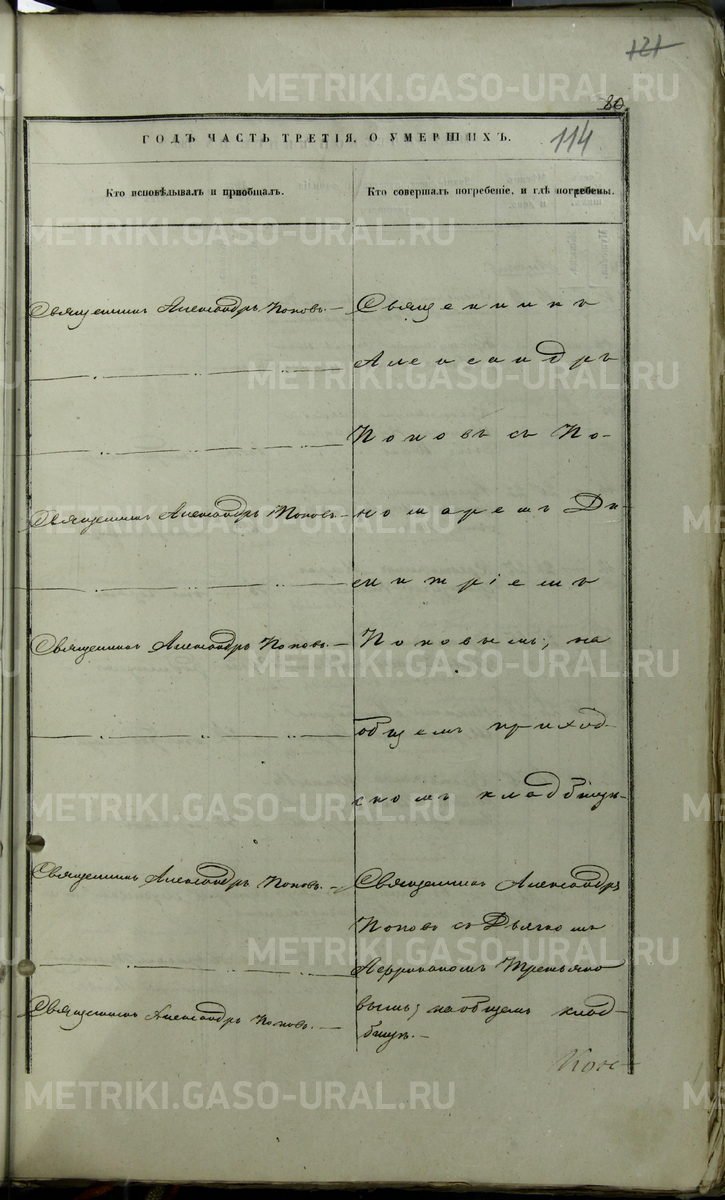 121
80.
114
ГОДЪ ЧАСТЬ ТРЕТІЯ, О УМЕРШИХЪ.
Кто исповѣдывалъ и пріобщалъ.
Кто совершалъ погребеніе, и гдѣ погребены.
Священникъ Александръ Поповъ. —
Священникъ Александръ Поповъ. —
Священникъ Александръ Поповъ. —
Священникъ Александръ Поповъ. —
Священникъ Александръ Поповъ. —
Священникъ
Александръ
Поповъ съ По-
номаремъ Ди-
митріемъ
Поповымъ, на
общемъ приход-
скомъ кладбищѣ.
Священникъ Александръ
Поповъ съ Дьячкомъ
Третьяко
вымъ, на общемъ клад-
бищѣ. —
METRIKI.GASO-URAL.RU
METRIKI.GASO-URAL.RU
METRIKI.GASO-URAL.RU
METRIKI.GASO-URAL.RU
METRIKI.GASO-URAL.RU
METRIKI.GASO-URAL.RU
METRIKI.GASO-URAL.RU
METRIKI.GASO-URAL.RU